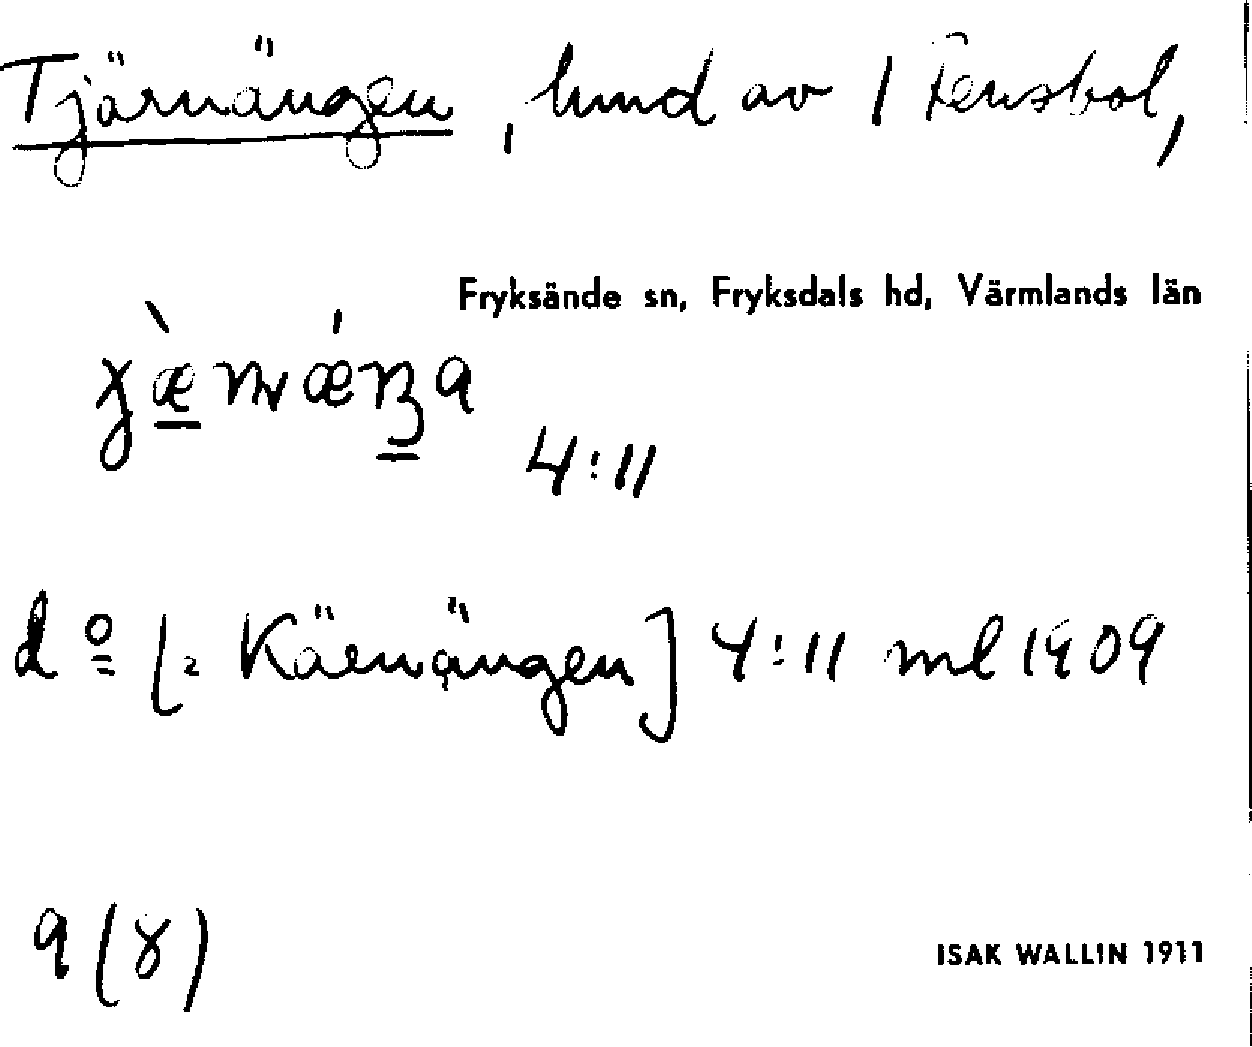 Tjärnängen, hmd av 1 Tensbol,
Fryksände sn, Fryksdals hd, Värmlands län
4:11
do [= Käenängen] 4:11 ml 1909
9 (8)
ISAK WALLIN 1911